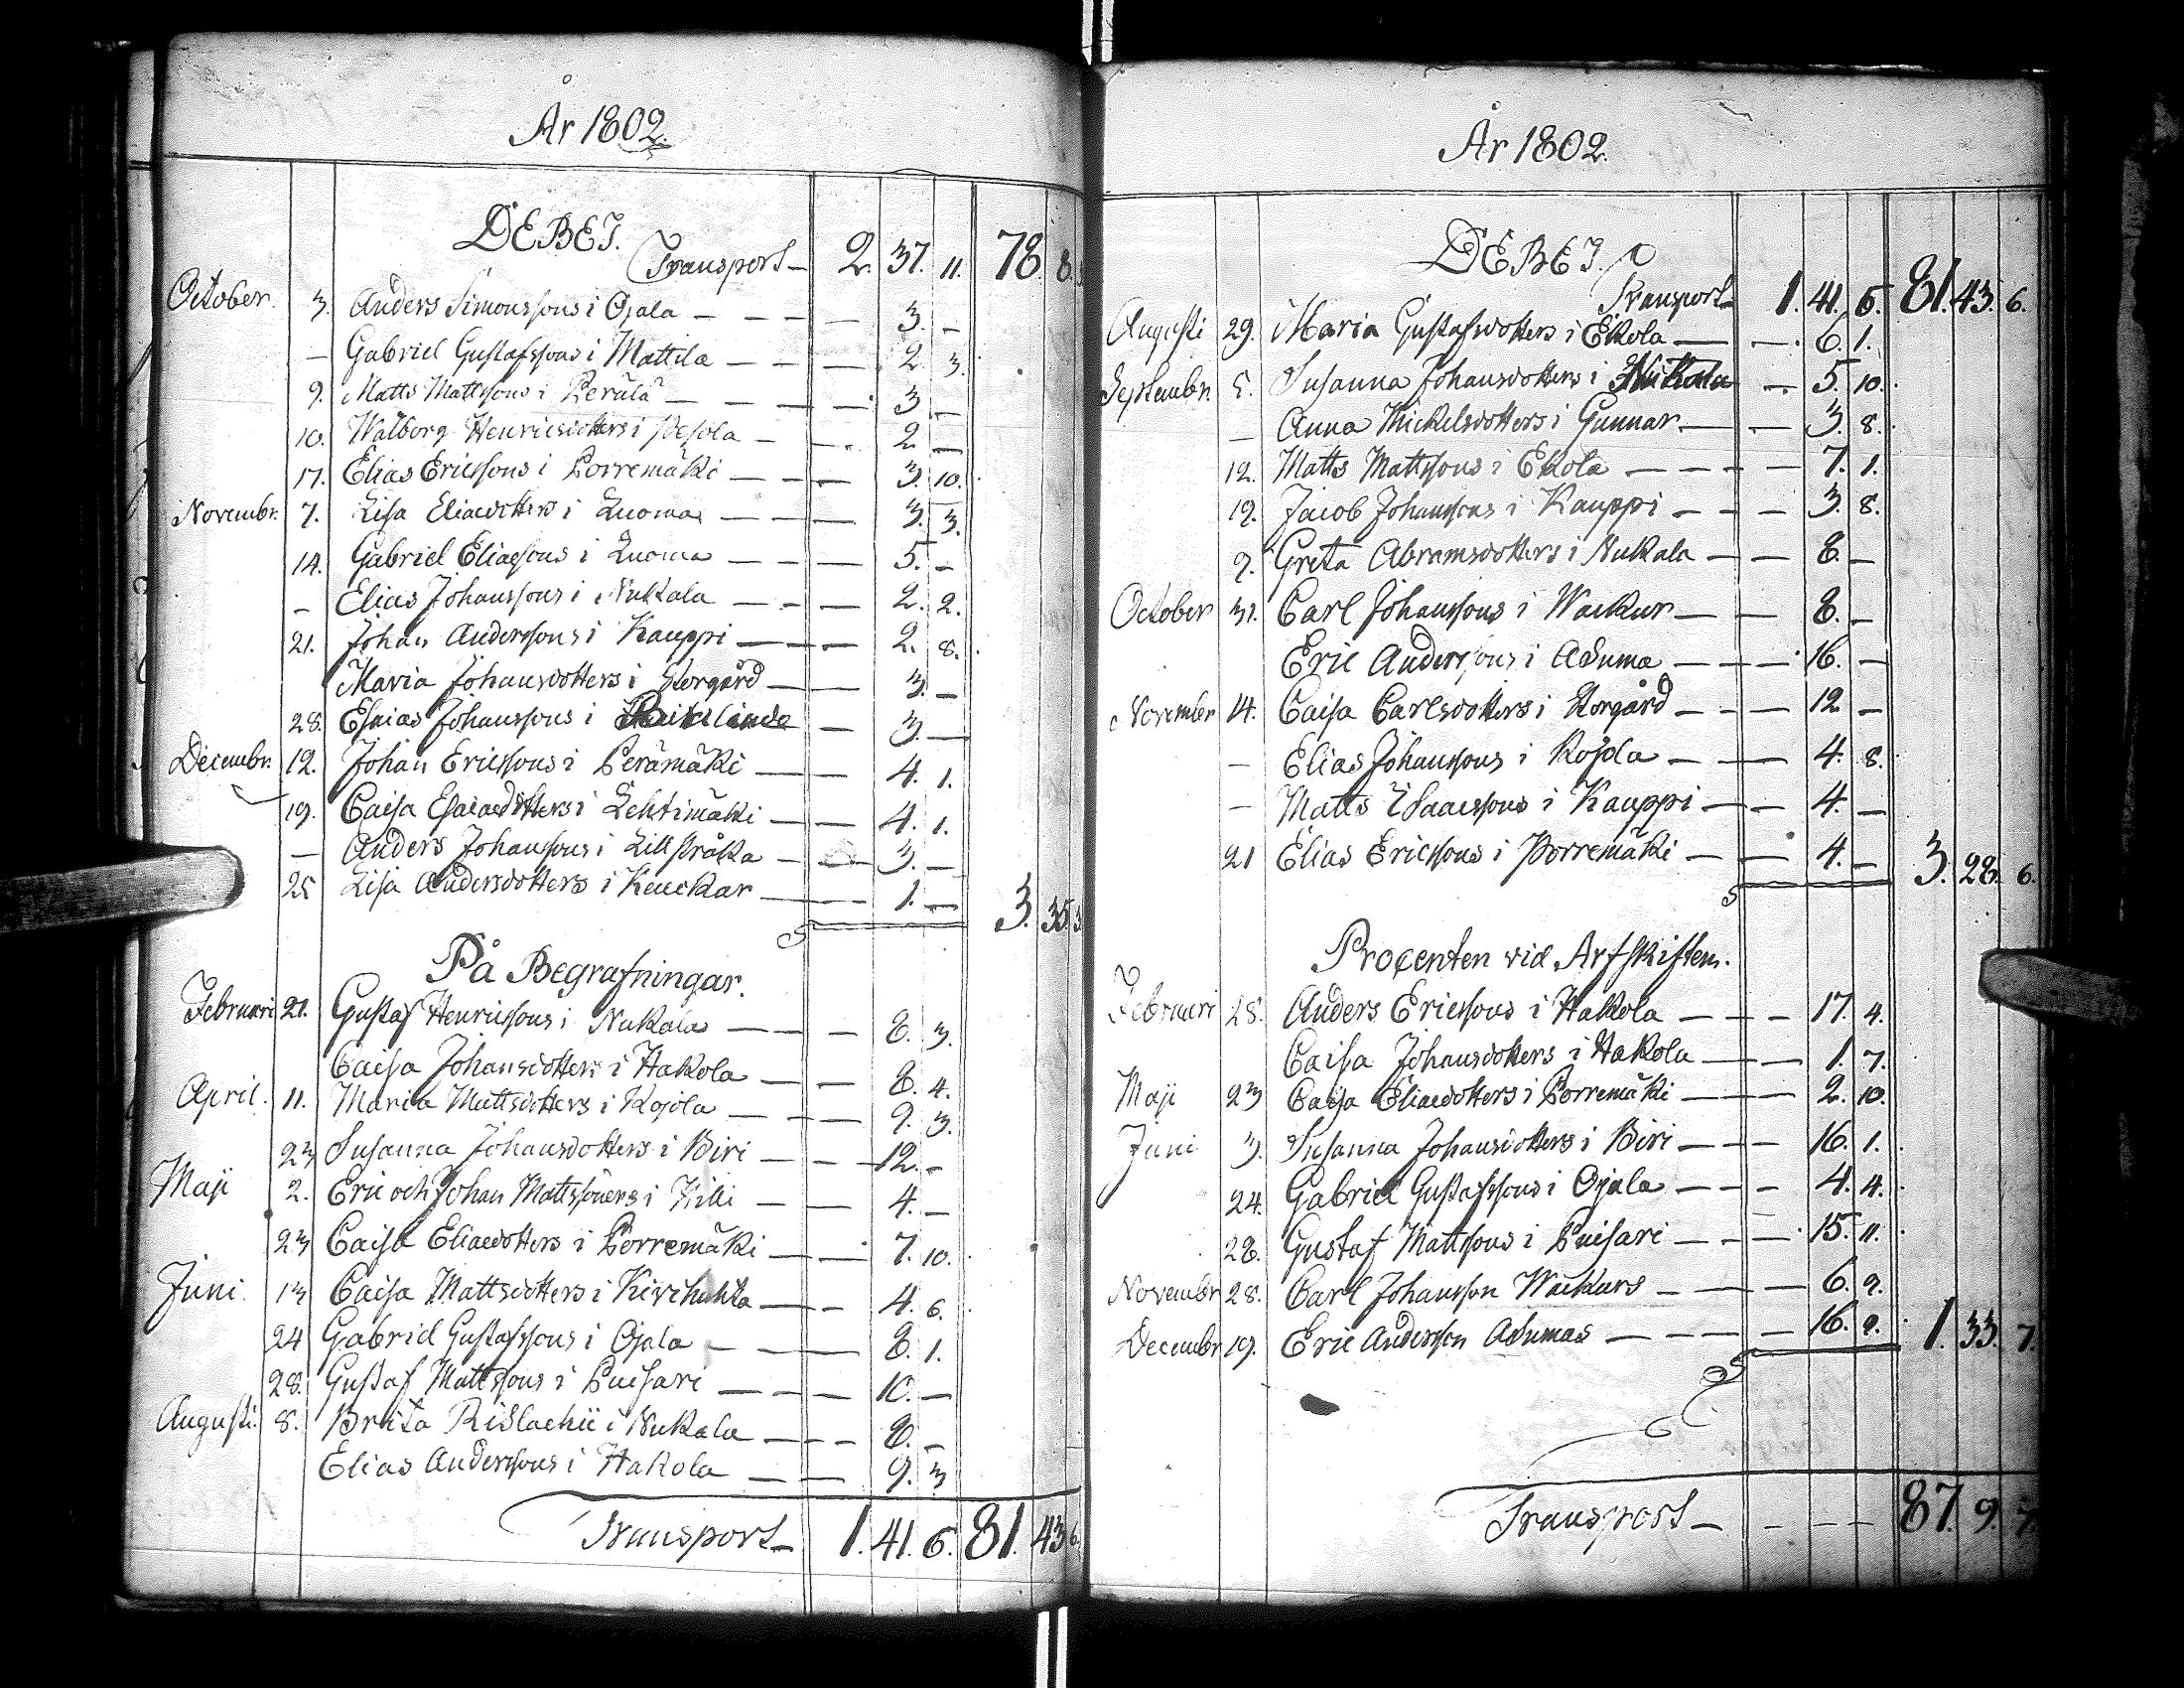 År 1802.
DEBET.
Transport — 2. 37. 11. 78. 8.
October. 3. Anders Simonssons i Ojala — 3. —
— Gabriel Gustafssons i Mattila — 2. 3.
9. Matts Mattssons i Perälä — 3. —
10. Walborg Henricsdotters i Pesola — 2. —
17. Elias Ericssons i Porremäki — 3. 10.
Novembr. 7. Lisa Eliaedotters i Luoma — 3. 3.
14. Gabriel Eliaessons i Luoma — 5. —
— Elias Johanssons i Nukala — 2. 2.
21. Johan Anderssons i Kauppi — 2. 8.
Maria Johansdotters i Storgård — 3. —
28. Esaias Johanssons i — 3. —
Decembr. 12. Johan Ericssons i Perämäki — 4. 1.
19. Caisa Esaiaedotters i Lehtimäki — 4. 1.
— Anders Johanssons i Lillstråka — 3. —
25 Lisa Andersdotters i Keuckar — 1. — 3. 35. 3
På Begrafningar.
Februari 21. Gustaf Henricssons i Nukala — 8. 3.
Caisa Johansdotters i Hakola — 8. 4.
April. 11. Maria Mattsdotters i Kojola — 9. 3.
23 Susanna Johansdotters i Biri — 12. —
Maji 2. Eric och Johan Mattssöners i — 4. —
23 Caisa Eliaedotters i Porremäki — 7. 10.
Juni. 13 Caisa Mattsdotters i — 4. 6.
24 Gabriel Gustafssons i Ojala — 8. 1.
28. Gustaf Mattssons i Luisari — 10. —
Augusti. 8. Brita Rislachii i Nukala — 8. —
Elias Anderssons i Hakola — 9. 3
Transport — 1. 41. 6. 81. 43 6.
År 1802.
DEBET.
Transport — 1. 41. 6. 81. 43. 6.
Augusti 29. Maria Gustafsdotters i Ekola — 6. 1.
Septembr. 5. Susanna Johansdotters i Nukala — 5. 10.
— Anna Mickelsdotters i Gunnar — 3. 8.
12. Matts Mattssons i Ekola — 7. 1.
19. Jacob Johanssons i Kauppi — 3. 8.
9. Greta Abramsdotters i Nukala — 8. —
October 31. Carl Johanssons i Wackur — 8. —
Eric Anderssons i Asuma — 16. —
November 14. Caisa Carlsdotters i Storgård — 12 —
— Elias Johanssons i Kojola — 4. 8.
— Matts Isaacssons i Kauppi — 4. —
21 Elias Ericssons i Porremäki — 4. — 3. 28. 6.
Procenten vid Arfskiften.
Februari 28. Anders Ericssons i Hakola — 17. 4.
Caisa Johansdotters i Hakola — 1. 7.
Maji 23 Caisa Eliaedotters i Porremäki — 2. 10.
Juni 3. Susanna Johansdotters i Biri — 16. 1.
24. Gabriel Gustafssons i Ojala — 4. 4.
28. Gustaf Mattssons i Luisari — 15. 11.
Novembr 28. Carl Johansson Wackurs — 6. 9.
Decembr 19. Eric Andersson Asumas — 16. 9. 1. 33. 7.
Transport — 87. 9. 7.